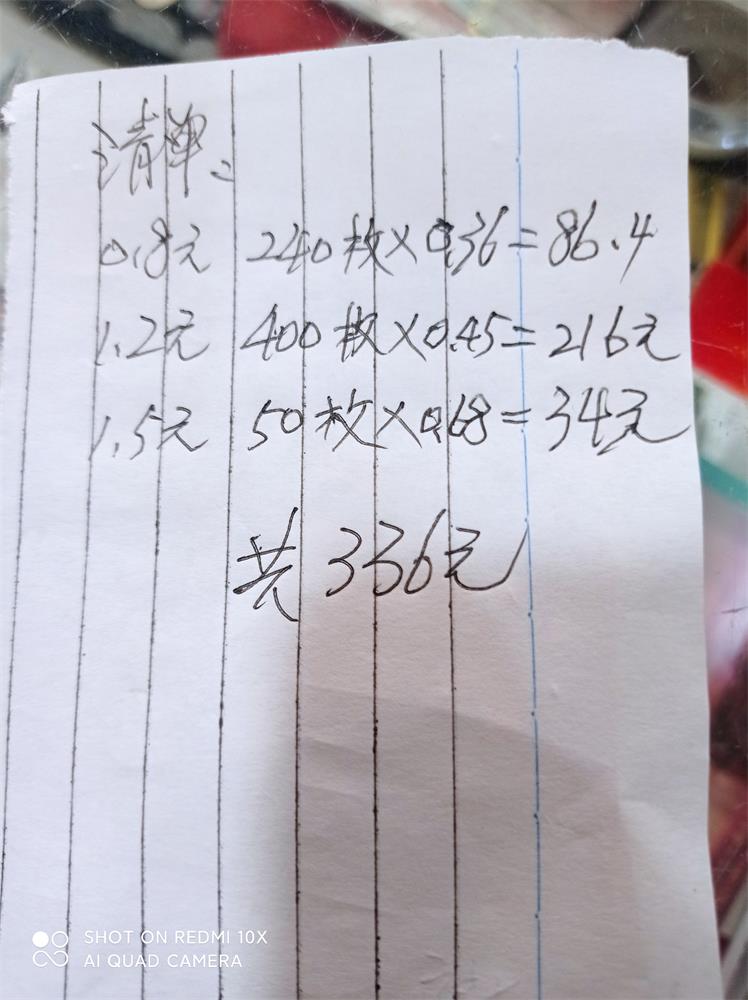 清单、
0.8元 240枚×0.36=86.4
1.2元 400枚×0.45=216元
1.5元 50枚×0.68=34元
共336元
SHOT ON REDMI 10X
AI QUAD CAMERA